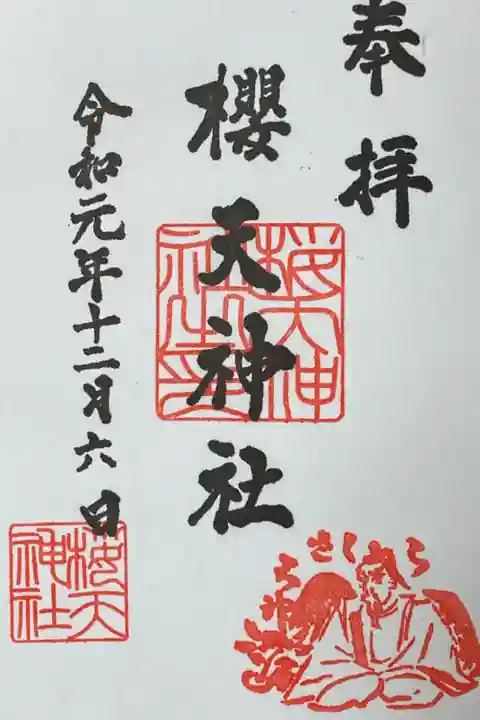 奉拝
櫻天神社
令和元年十二月六日
桜天神社之印
桜天神社
さくら